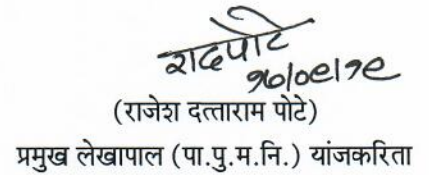 रादपोटे
१७/०९/१९
(राजेश दत्ताराम पोटे)
प्रमुख लेखापाल (पा.पु.म.नि.) यांजकरिता